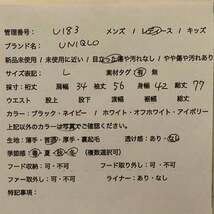 管理番号: U183 メンズ / レディース / キッズ
ブランド名: UNIQLO
新品未使用 / 未使用に近い / 目立った傷や汚れなし / やや傷や汚れあり
サイズ表記: L 素材タグ 有・無
採寸: 裄丈 肩幅 34 袖丈 56 身幅 42 総丈 77
ウエスト 股上 股下 渡幅 裾幅 総丈
カラー: ブラック・ネイビー / ホワイト・オフホワイト・アイボリー
上記以外のカラーは写真でご確認ください。
生地: 薄手・普通・厚手・裏起毛 透け感 あり・なし
季節感 春・夏・秋・冬 (複数選択可)
フード収納: 可・不可 フード取り外し: 可・不可
ファー取り外し: 可・不可 ライナー: あり・なし
特記事項: